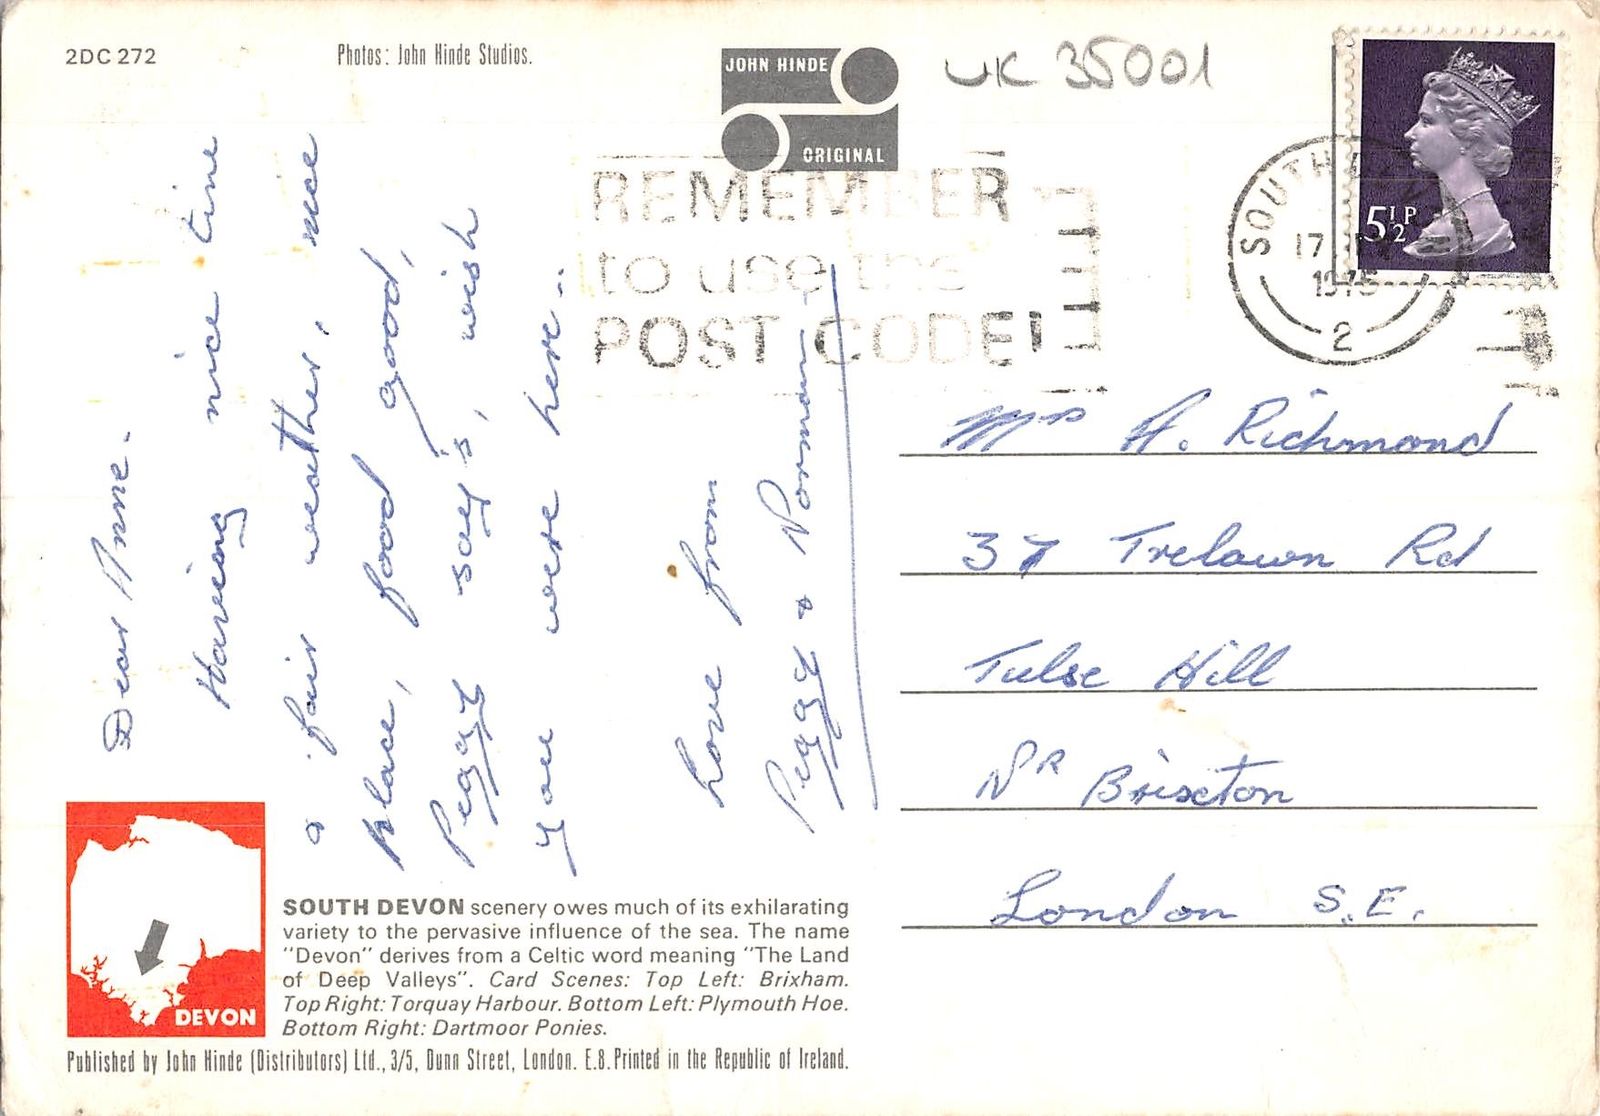 2DC 272
Photos: John Hinde Studios.
JOHN HINDE
ORIGINAL
UK 35001
5½P
REMEMBER
to use the
POST CODE!
SOUTH
17
197
2
Dear Anne.
Having nice time
& fair weather, nice
place, food good,
Peggy say's, wish
you were here..
Love from
Peggy & Norman
Mrs A. Richmond
37 Trelawn Rd
Tulse Hill
Nr Brixton
London S.E.
DEVON
SOUTH DEVON scenery owes much of its exhilarating
variety to the pervasive influence of the sea. The name
"Devon" derives from a Celtic word meaning "The Land
of Deep Valleys". Card Scenes: Top Left: Brixham.
Top Right: Torquay Harbour. Bottom Left: Plymouth Hoe.
Bottom Right: Dartmoor Ponies.
Published by John Hinde (Distributors) Ltd., 3/5, Dunn Street, London. E.8. Printed in the Republic of Ireland.